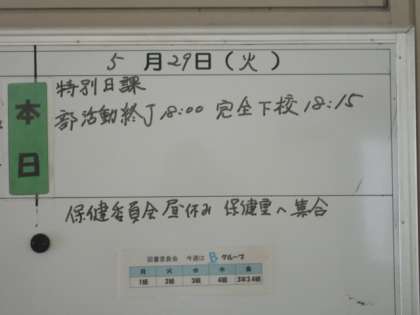 5月29日(火)
特別日課
本日
部活動終了18:00 完全下校18:15
保健委員会 昼休み 保健室へ集合
図書委員会 今週は B グループ
月 火 水 木 金
1組 2組 3組 4組 3年34組